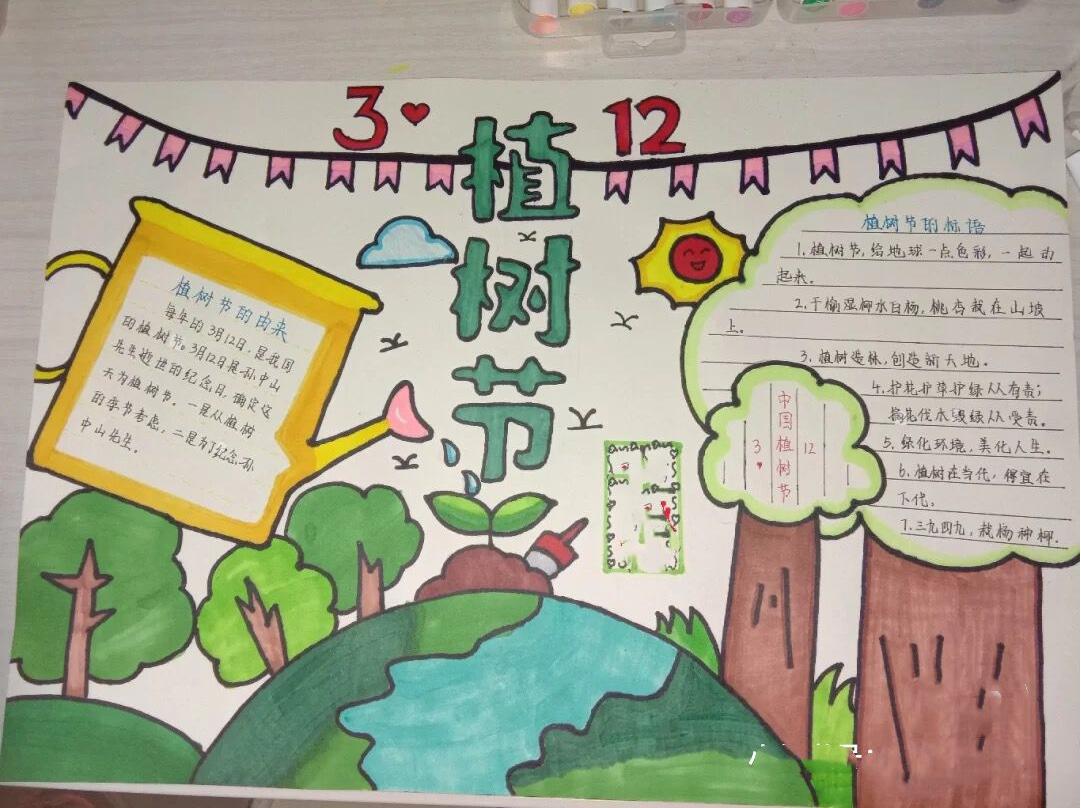 3 12
植树节
植树节的由来
每年的3月12日,是我国
的植树节。3月12日是孙中山
先生逝世的纪念日,确定这
天为植树节。一是从植树
的季节考虑,二是为了纪念孙
中山先生。
植树节的标语
1.植树节,给地球一点色彩,一起由
起来。
2.干榆湿柳水白杨,桃杏栽在山坡
上。
3.植树造林,创造新天地。
4.护花护草护绿人人有责;
搞花伐木毁绿人人受责。
5.绿化环境,美化人生。
6.植树在当代,得宜在
下代。
7.三九四九,栽杨种柳.
中国植树节
3 12